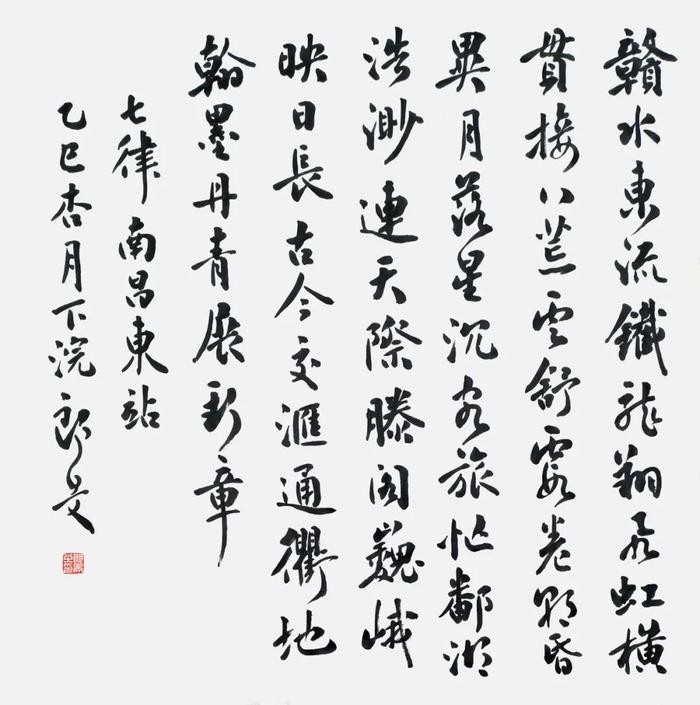 贛水東流鐵龍翔長虹橫
貫接八荒雲舒霞卷朝昏
異月落星沉客旅忙鄱湖
浩渺連天際滕閣巍峨
映日長古今交滙通衢地
翰墨丹青展新章
七律 南昌東站
乙巳杏月下浣郎